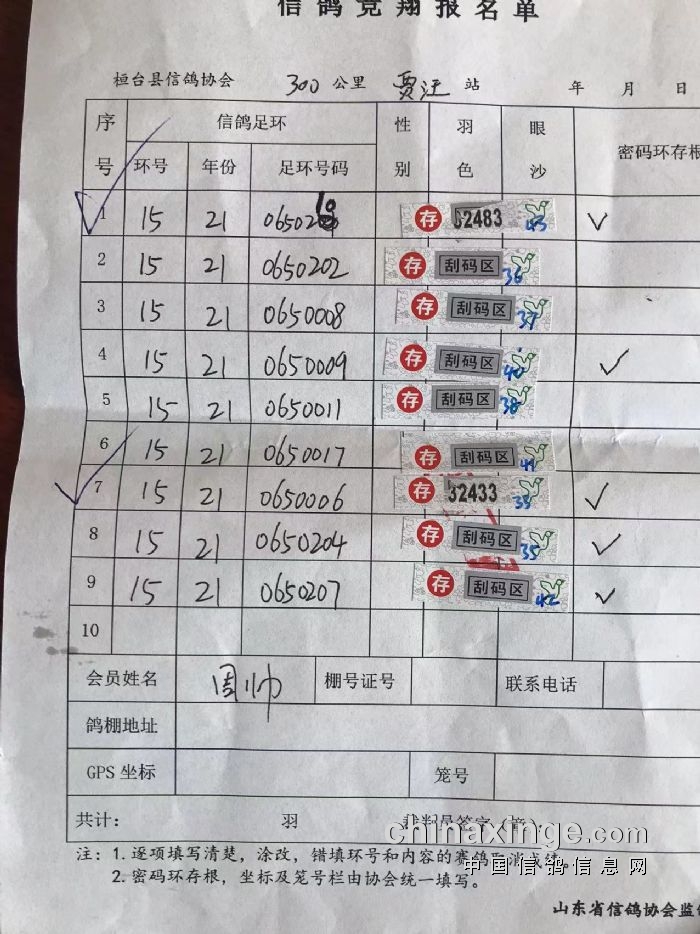 信鸽竞翔报名单
桓台县信鸽协会 300 公里 贾汪 站 年 月 日
序号 信鸽足环 性别 羽色 眼沙 密码环存根
环号 年份 足环号码
1 15 21 06502 存 02483 43 ✓
2 15 21 0650202 存 刮码区 36
3 15 21 0650008 存 刮码区 37
4 15 21 0650009 存 刮码区 40 ✓
5 15 21 0650011 存 刮码区 38
6 15 21 0650017 存 刮码区 41
7 15 21 0650006 存 32433 ✓
8 15 21 0650204 存 刮码区 35 ✓
9 15 21 0650207 存 刮码区 42 ✓
10
会员姓名 周帅 棚号证号 联系电话
鸽棚地址
GPS 坐标 笼号
共计: 羽 裁判员签字
注: 1. 逐项填写清楚，涂改，错填环号和内容的赛鸽取消成绩
2. 密码环存根，坐标及笼号栏由协会统一填写。
chinaxinge.com
中国信鸽信息网
山东省信鸽协会监